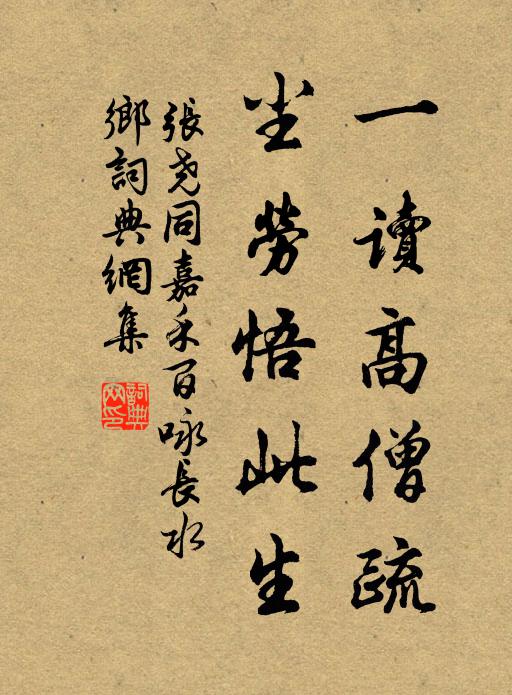 一讀高僧疏
尘勞悟此生
張堯同嘉禾百咏長水
鄉詞典網集
詞典
网印